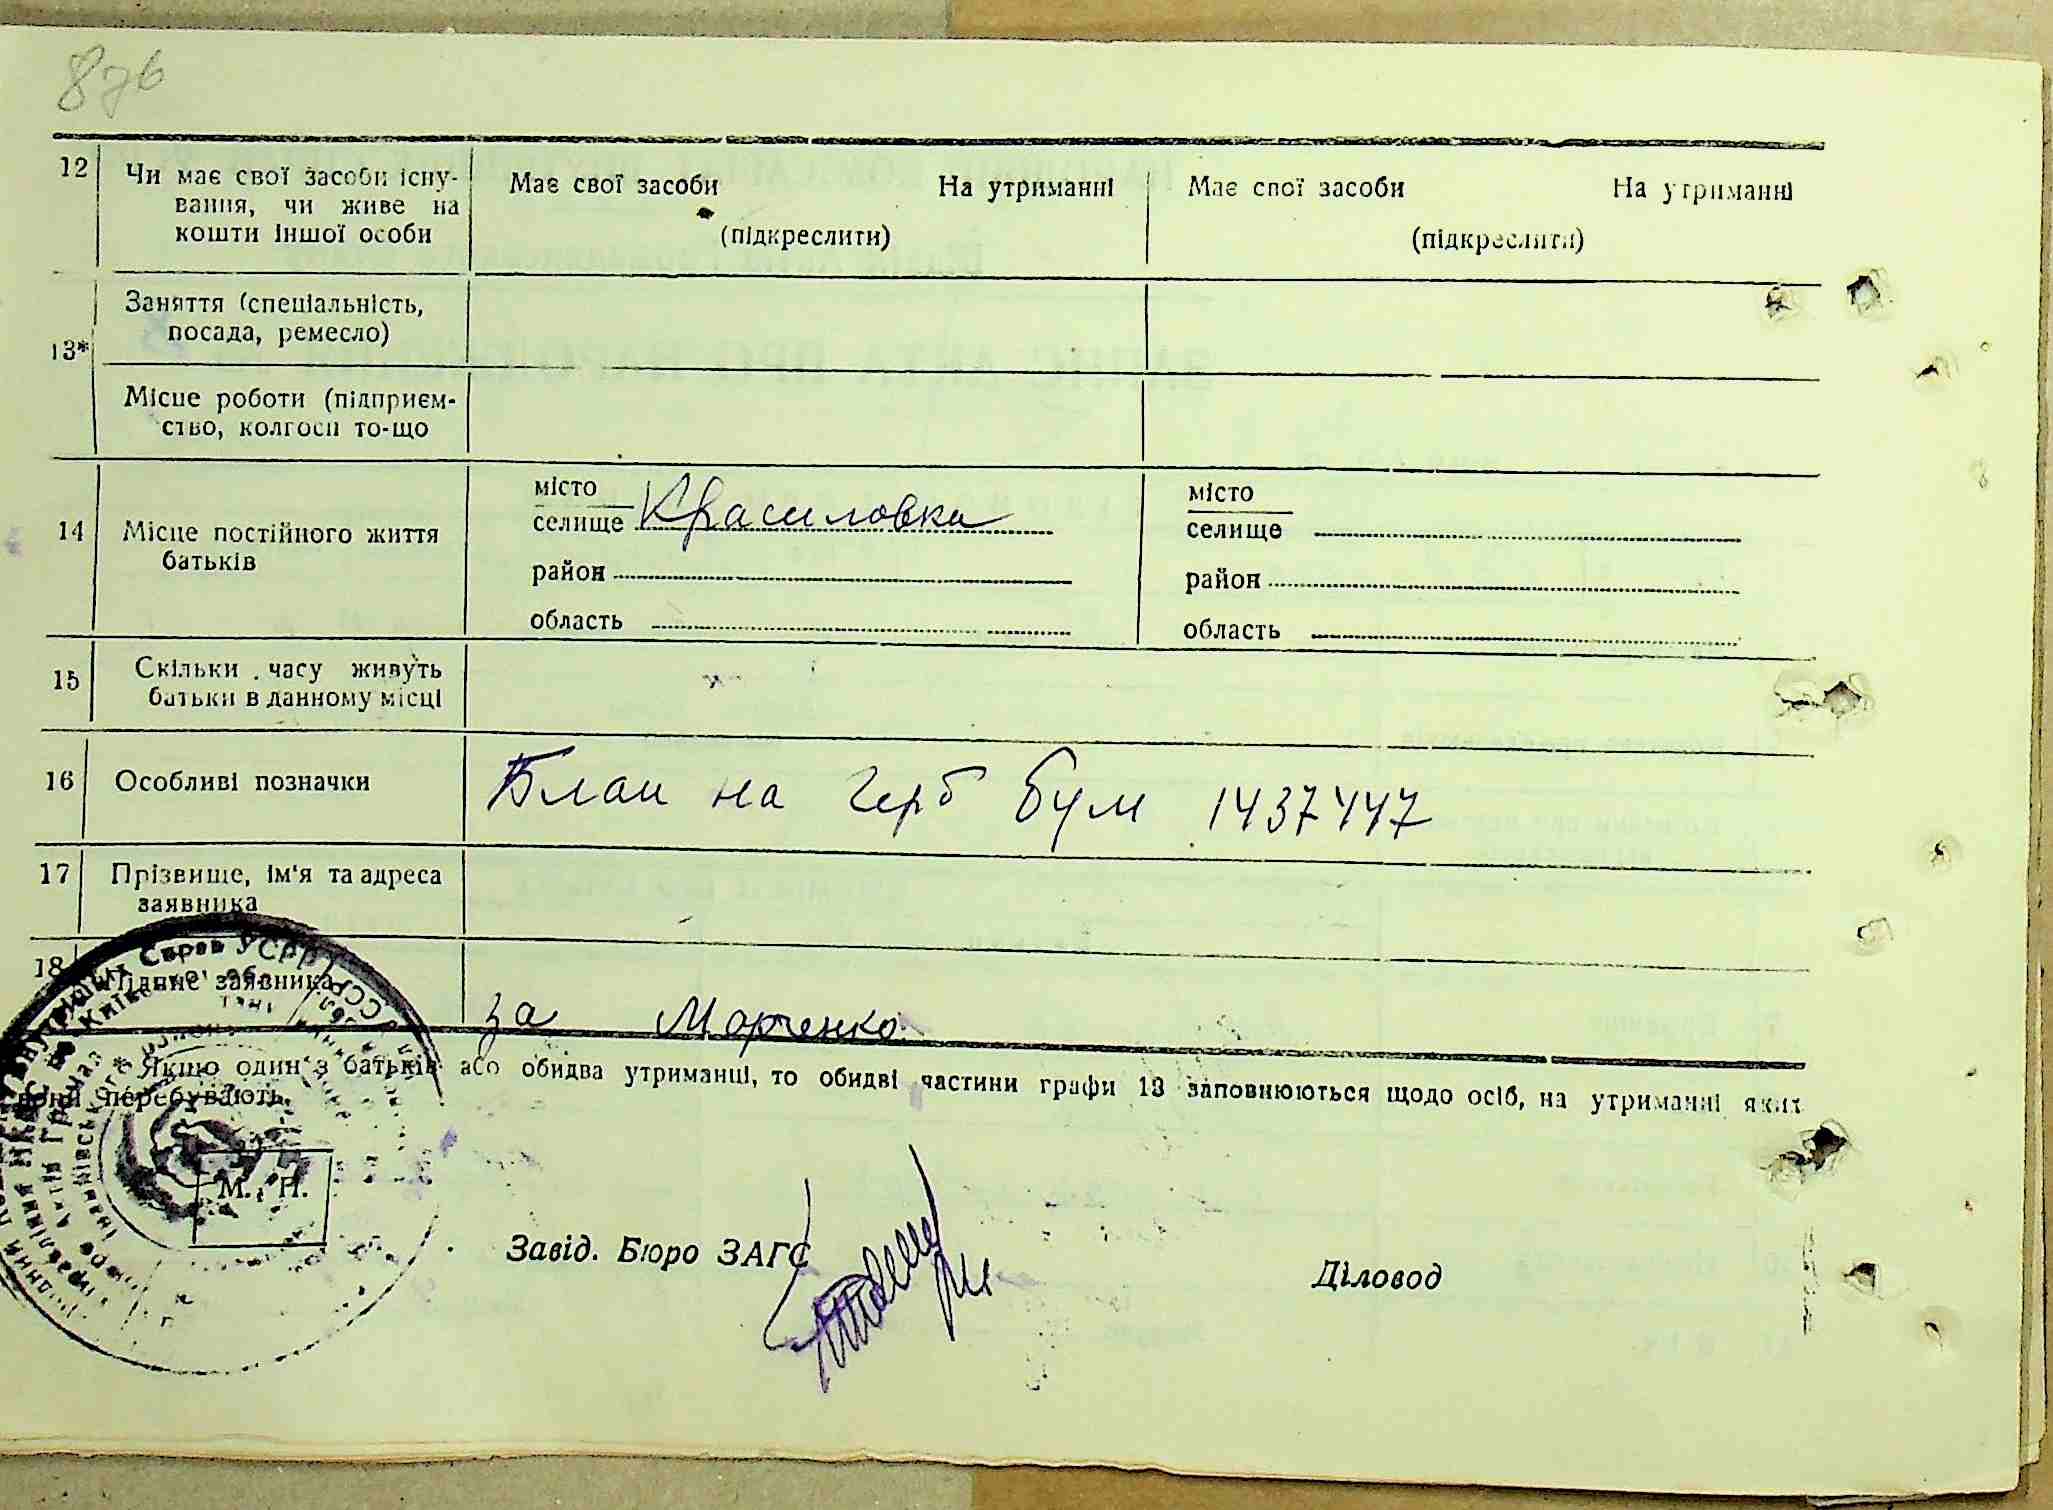 12
Чи має свої засоби існу-
вання, чи живе на
кошти іншої особи
Має свої засоби На утриманні
(підкреслити)
Має свої засоби На утриманні
(підкреслити)
13*
Заняття (спеціальність,
посада, ремесло)
Місце роботи (підприєм-
ство, колгосп то-що
14
Місце постійного життя
батьків
місто
селище Красиловка
район
область
місто
селище
район
область
15
Скільки часу живуть
батьки в данному місці
16
Особливі позначки
Блан на герб бум 1437447
17
Прізвище, ім'я та адреса
заявника
18
Підпис заявника
за Марченко
Якщо один з батьків або обидва утриманці, то обидві частини графи 13 заповнюються щодо осіб, на утриманні яких
вони перебувають.
М. П.
Завід. Бюро ЗАГС
Діловод